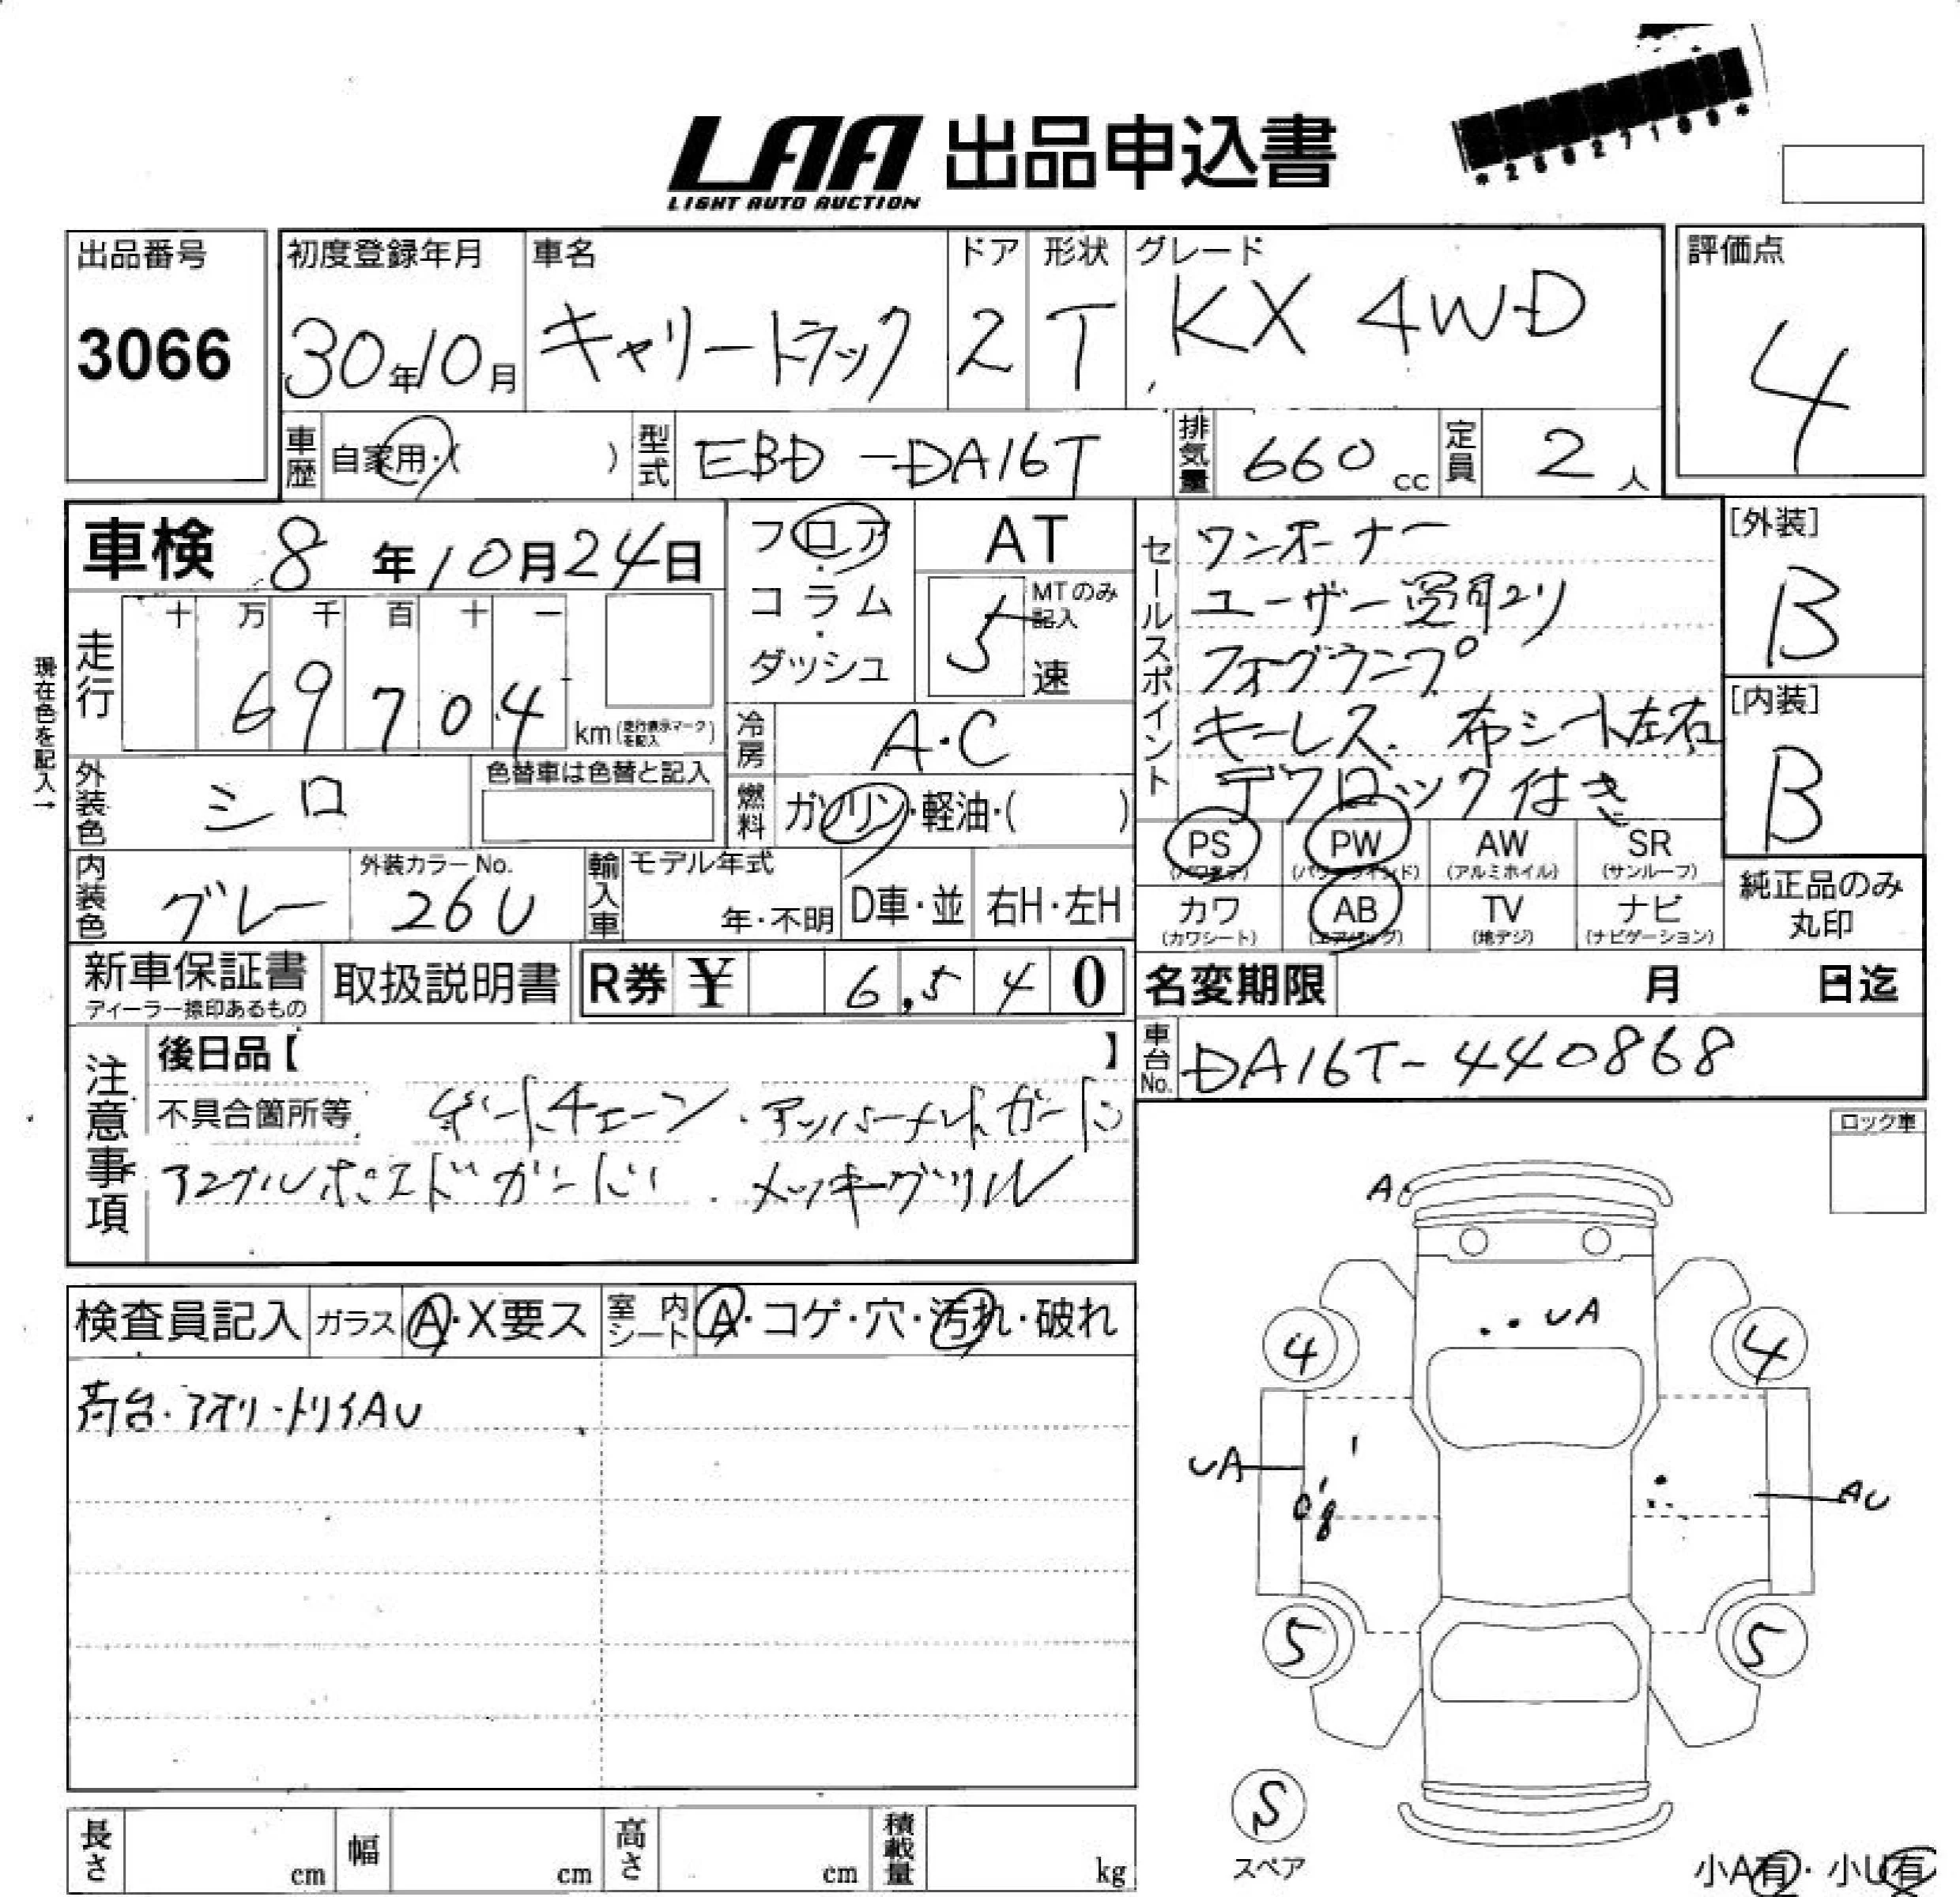 LAA 出品申込書
LIGHT AUTO AUCTION
出品番号
3066
初度登録年月
30年10月
車名
キャリートラック
ドア
2
形状
T
グレード
KX 4WD
評価点
4
車歴 自家用・( )
型式 EBD-DA16T
排気量 660 cc
定員 2 人
車検 8年10月24日
フロア・コラム・ダッシュ
AT
MTのみ記入
5 速
セールスポイント
ワンオーナー
ユーザー買取り
フォグランプ
キーレス. 布シート左右
デフロック付き
[外装]
B
[内装]
B
現在色を記入→
走行
十 万 千 百 十 一
69704
km(走行表示マークを記入)
冷房 A・C
外装色 シロ
色替車は色替と記入
燃料 ガソリン・軽油・( )
内装色 グレー
外装カラーNo.
26U
輸入車
モデル年式
年・不明
D車・並
右H・左H
PS (パワステ)
PW (パワーウインド)
AW (アルミホイル)
SR (サンルーフ)
カワ (カワシート)
AB (エアバッグ)
TV (地デジ)
ナビ (ナビゲーション)
純正品のみ
丸印
新車保証書
ディーラー捺印あるもの
取扱説明書
R券 ¥ 6,540
名変期限 月 日迄
車台No. DA16T-440868
注意事項
後日品【 】
不具合箇所等 ゲートチェーン・アッパーメントガード
メッキグリル
ロック車
検査員記入
ガラス A・X要ス
室内シート A・コゲ・穴・汚れ・破れ
荷台・アオリ・トリイAU
A
UA
4
4
UA
AU
5
5
S
スペア
長さ cm
幅 cm
高さ cm
積載量 kg
小A有・小U有